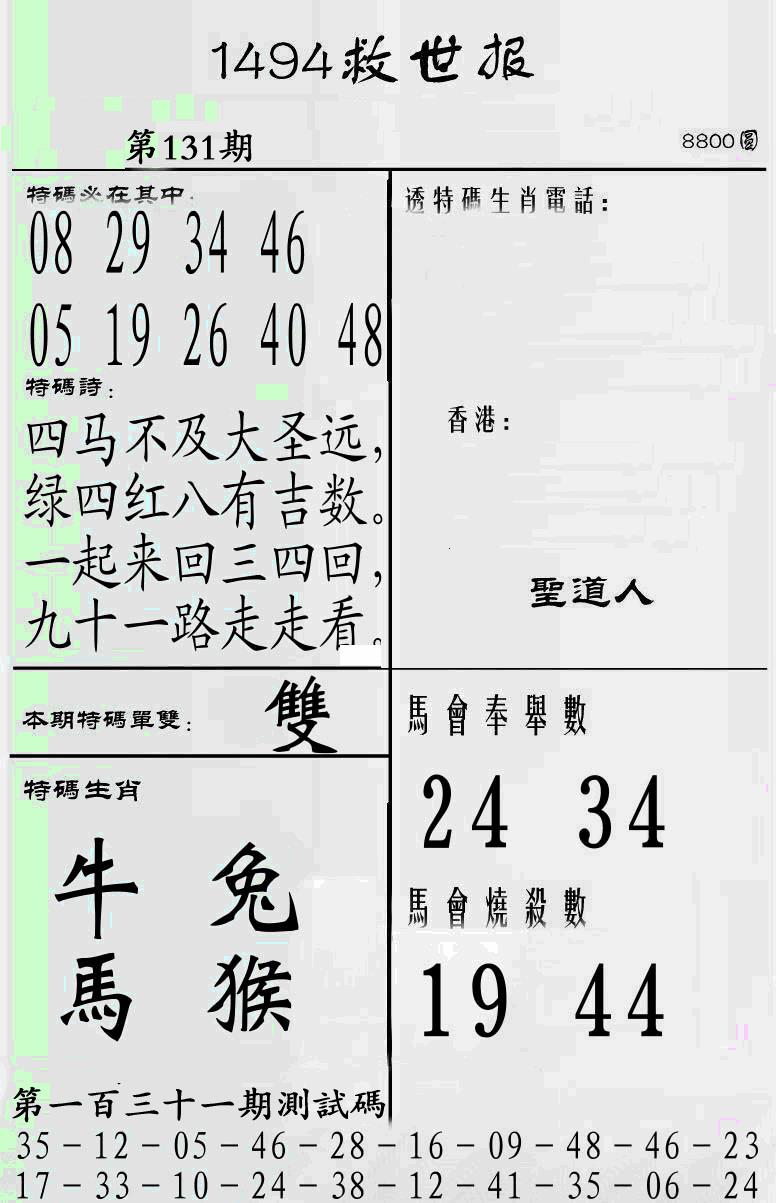 1494救世报
第131期
8800圓
特碼必在其中：
08 29 34 46
05 19 26 40 48
特碼詩：
四马不及大圣远，
绿四红八有吉数。
一起来回三四回，
九十一路走走看。
透特碼生肖電話：
香港：
聖道人
本期特碼單雙：
雙
特碼生肖
牛 兔
馬 猴
馬會奉舉數
24 34
馬會燒殺數
19 44
第一百三十一期測試碼
35－12－05－46－28－16－09－48－46－23
17－33－10－24－38－12－41－35－06－24